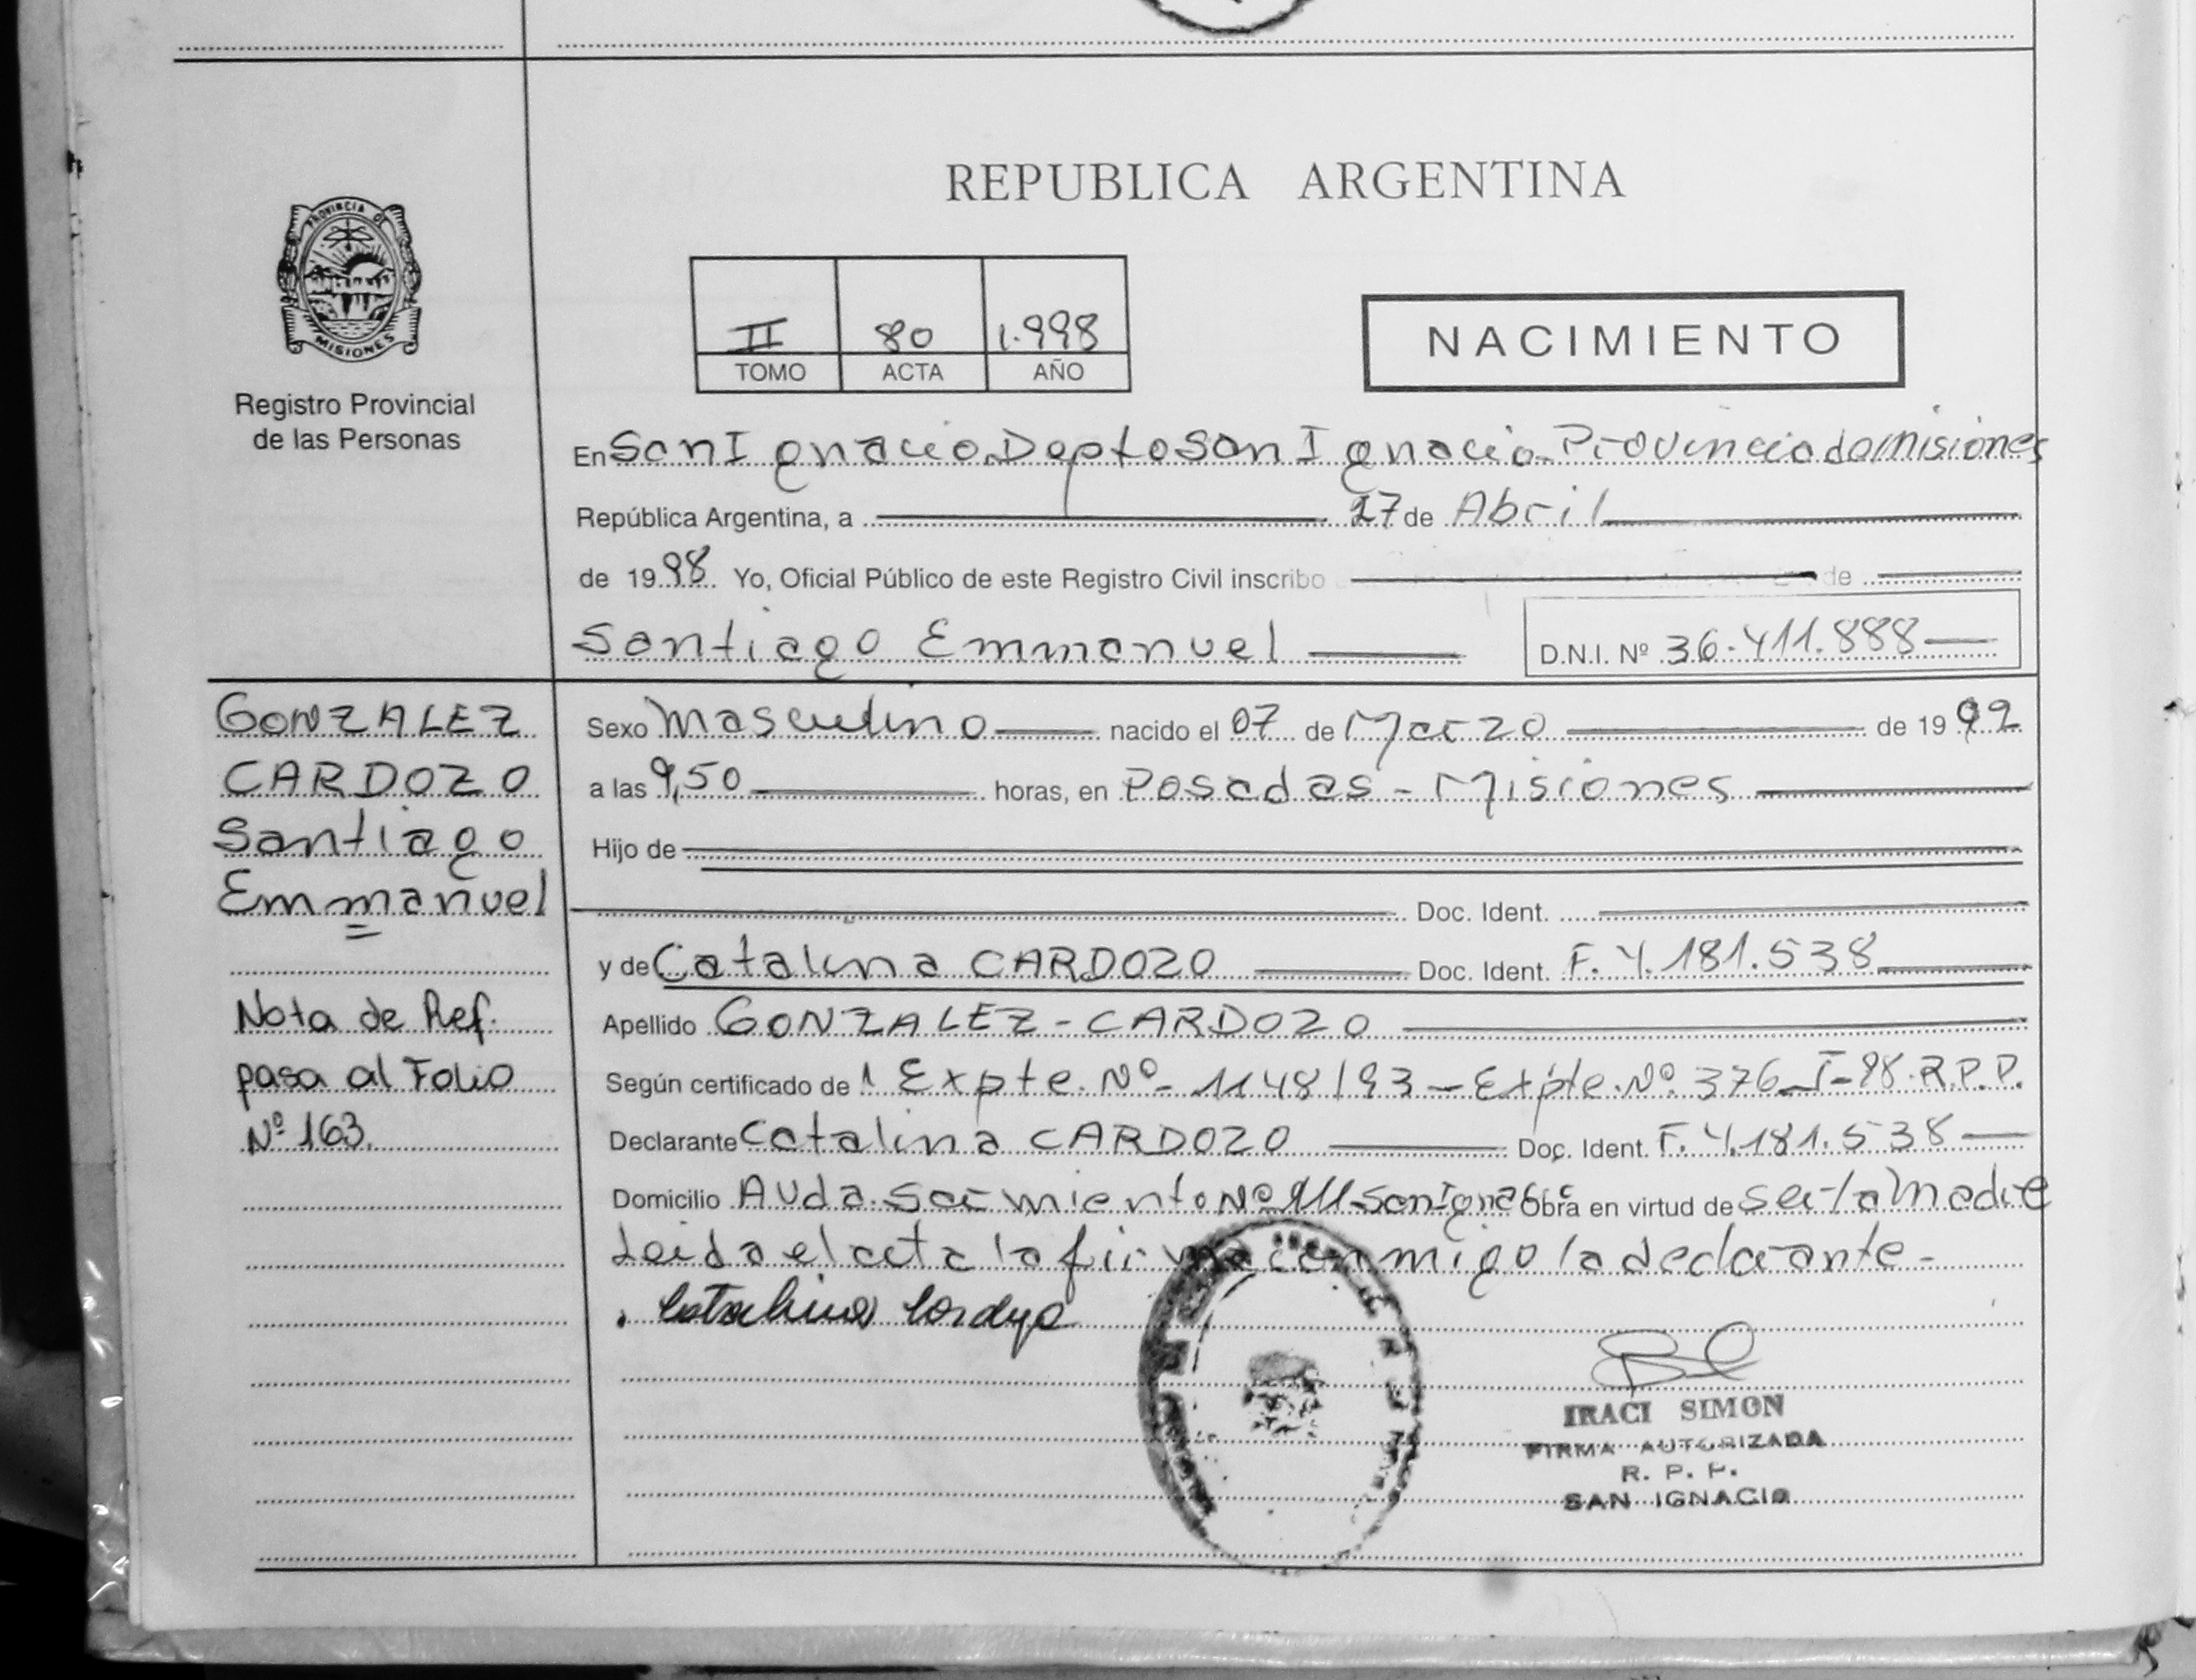 PROVINCIA DE
MISIONES
Registro Provincial
de las Personas
REPUBLICA ARGENTINA
II 80 1.998
TOMO ACTA AÑO
NACIMIENTO
En San Ignacio, Depto San Ignacio - Provincia de Misiones
República Argentina, a 27 de Abril
de 1998 Yo, Oficial Público de este Registro Civil inscribo de
Santiago Emmanuel D.N.I. Nº 36.411.888
GONZALEZ
CARDOZO
Santiago
Emmanuel
Nota de Ref.
pasa al Folio
Nº 163.
Sexo Masculino nacido el 07 de Marzo de 1992
a las 9,50 horas, en Posadas - Misiones
Hijo de
Doc. Ident.
y de Catalina CARDOZO Doc. Ident. F. 4.181.538
Apellido GONZALEZ - CARDOZO
Según certificado de Expte. Nº 1148/93 - Expte. Nº 376-I-98-R.P.P.
Declarante Catalina CARDOZO Doc. Ident. F. 4.181.538
Domicilio Avda. Sarmiento Nº San Ignacio Obra en virtud de ser la Madre
Leida el acta la firma conmigo la declarante -
Catalina Cardozo
IRACI SIMON
FIRMA AUTORIZADA
R. P. P.
SAN IGNACIO